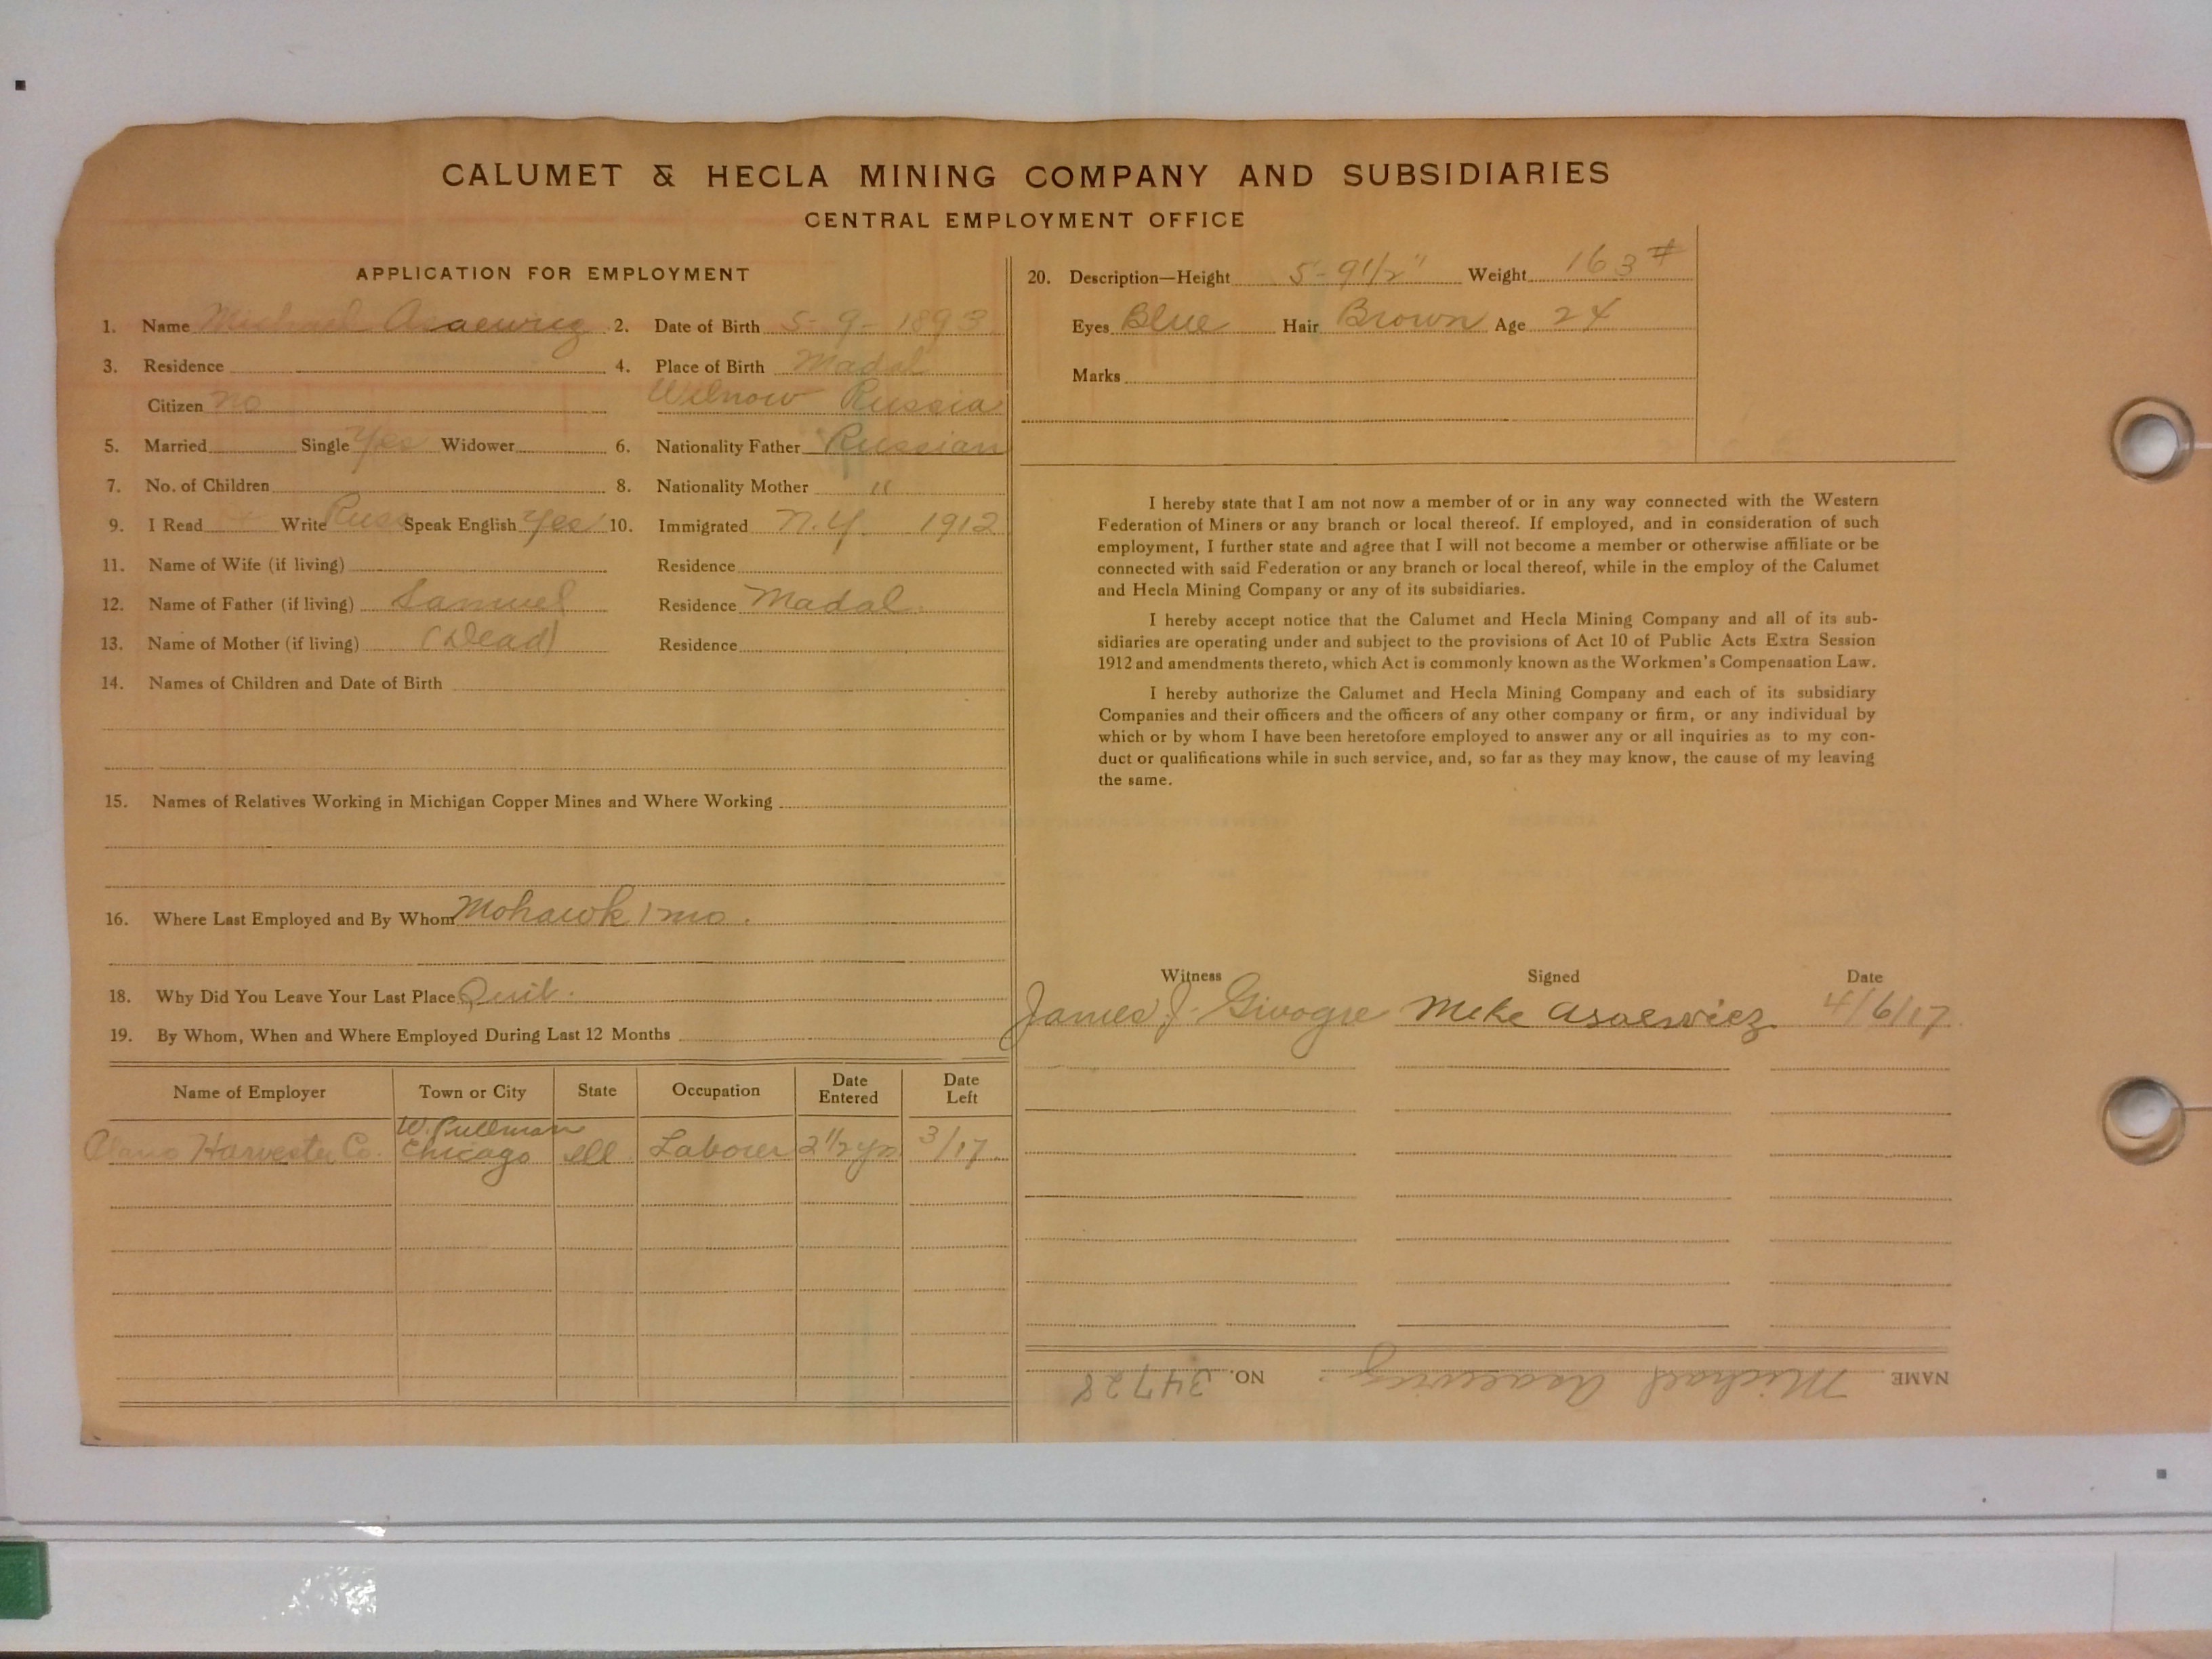 CALUMET & HECLA MINING COMPANY AND SUBSIDIARIES
CENTRAL EMPLOYMENT OFFICE
APPLICATION FOR EMPLOYMENT
1. Name Michael Asaewicz 2. Date of Birth 5-9-1893
3. Residence 4. Place of Birth Madal
Citizen no Wilnow Russia
5. Married Single Yes Widower 6. Nationality Father Russian
7. No. of Children 8. Nationality Mother "
9. I Read Write Russ Speak English Yes 10. Immigrated N.Y. 1912
11. Name of Wife (if living) Residence
12. Name of Father (if living) Samuel Residence Madal.
13. Name of Mother (if living) (Dead) Residence
14. Names of Children and Date of Birth
15. Names of Relatives Working in Michigan Copper Mines and Where Working
16. Where Last Employed and By Whom Mohawk 1 mo.
18. Why Did You Leave Your Last Place Quit.
19. By Whom, When and Where Employed During Last 12 Months
Name of Employer Town or City State Occupation Date Entered Date Left
W. Pullman
Harvester Co. Chicago Ill. Laborer 2 1/2 yrs 3/17
20. Description—Height 5-9 1/2" Weight 163#
Eyes Blue Hair Brown Age 24
Marks
I hereby state that I am not now a member of or in any way connected with the Western
Federation of Miners or any branch or local thereof. If employed, and in consideration of such
employment, I further state and agree that I will not become a member or otherwise affiliate or be
connected with said Federation or any branch or local thereof, while in the employ of the Calumet
and Hecla Mining Company or any of its subsidiaries.
I hereby accept notice that the Calumet and Hecla Mining Company and all of its sub-
sidiaries are operating under and subject to the provisions of Act 10 of Public Acts Extra Session
1912 and amendments thereto, which Act is commonly known as the Workmen's Compensation Law.
I hereby authorize the Calumet and Hecla Mining Company and each of its subsidiary
Companies and their officers and the officers of any other company or firm, or any individual by
which or by whom I have been heretofore employed to answer any or all inquiries as to my con-
duct or qualifications while in such service, and, so far as they may know, the cause of my leaving
the same.
Witness Signed Date
James J. Givogre Mike Asaewicz 4/6/17.
NAME Michael Asaewicz. NO. 34728